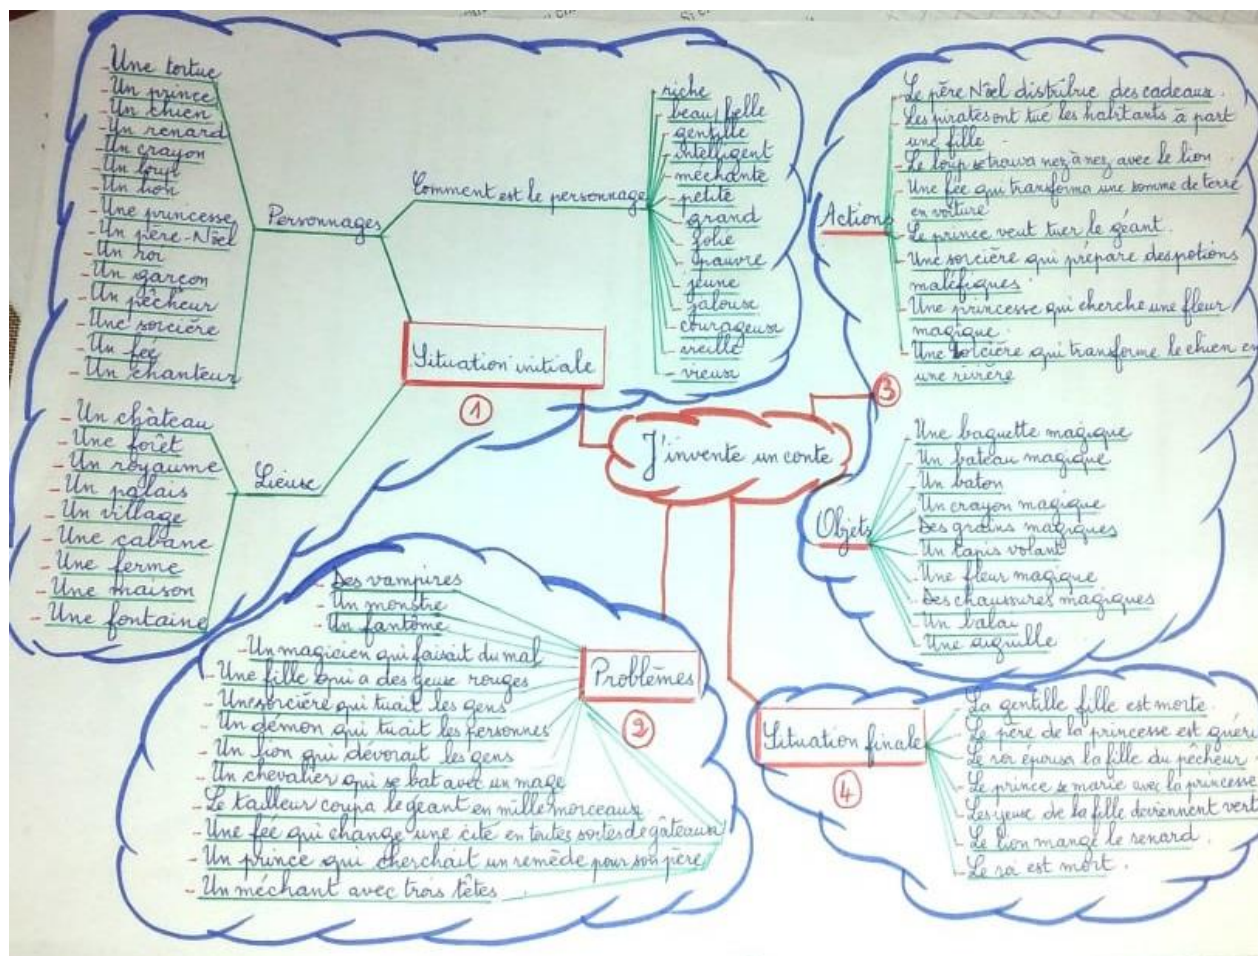 Une tortue
Un prince
Un chien
Un renard
Un crayon
Un loup
Un lion
Une princesse
Un père-Nöel
Un roi
Un garçon
Un pêcheur
Une sorcière
Un fée
Un chanteur
Personnages
Comment est le personnage
riche
beau/belle
gentille
intelligent
méchante
petite
grand
jolie
pauvre
jeune
jalouse
courageuse
vieille
vieux
Situation initiale
1
Un château
Une forêt
Un royaume
Un palais
Un village
Une cabane
Une ferme
Une maison
Une fontaine
Lieux
J'invente un conte
Des vampires
Un monstre
Un fantôme
Un magicien qui faisait du mal
Une fille qui a des yeux rouges
Une sorcière qui tuait les gens
Un démon qui tuait les personnes
Un lion qui dévorait les gens
Un chevalier qui se bat avec un mage
Le tailleur coupa le géant en mille morceaux
Une fée qui change une cité en toutes sortes de gâteaux
Un prince qui cherchait un remède pour son père
Un méchant avec trois têtes
Problèmes
2
3
Actions
Le père Nöel distribue des cadeaux.
Les pirates ont tué les habitants à part
une fille
Le loup se trouva nez à nez avec le lion
Une fée qui transforma une pomme de terre
en voiture
Le prince veut tuer le géant.
Une sorcière qui prépare des potions
maléfiques
Une princesse qui cherche une fleur
magique.
Une sorcière qui transforme le chien en
une rivière
Objets
Une baguette magique
Un bateau magique
Un baton
Un crayon magique
Des grains magiques
Un tapis volant
Une fleur magique
Des chaussures magiques
Un balai
Une aiguille
Situation finale
4
La gentille fille est morte.
Le père de la princesse est guéri
Le roi épousa la fille du pêcheur.
Le prince se marie avec la princesse
Les yeux de la fille deviennent vert
Le lion mange le renard.
Le roi est mort.